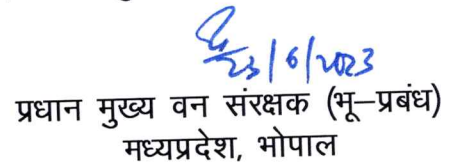 23/6/2023
प्रधान मुख्य वन संरक्षक (भू–प्रबंध)
मध्यप्रदेश, भोपाल